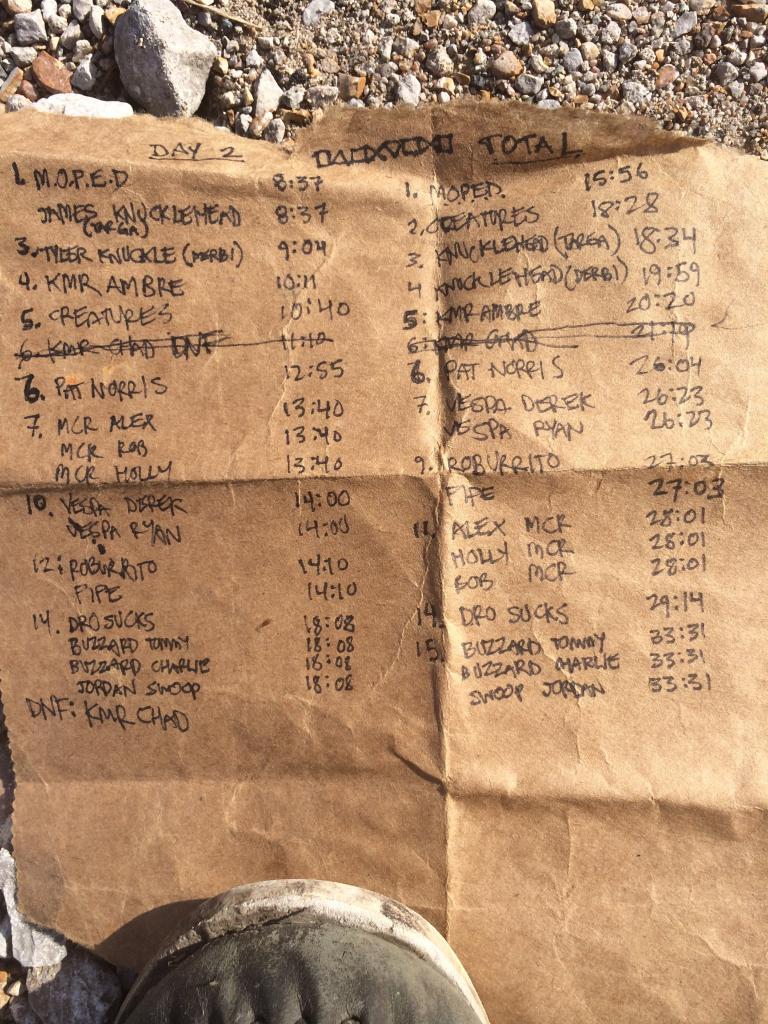 DAY 2
1. M.O.P.E.D 8:37
JAMES KNUCKLEHEAD 8:37
(TARGA)
3. TYLER KNUCKLE (DERBI) 9:04
4. KMR AMBRE 10:11
5. CREATURES 10:40
6. KMR CHAD DNF 11:10
6. PAT NORRIS 12:55
7. MCR ALEX 13:40
MCR ROB 13:40
MCR HOLLY 13:40
10. VESPA DEREK 14:00
VESPA RYAN 14:00
12: ROBURRITO 14:10
FIFE 14:10
14. DRO SUCKS 18:08
BUZZARD TOMMY 18:08
BUZZARD CHARLIE 18:08
JORDAN SWOOP 18:08
DNF: KMR CHAD
TOTAL
1. MOPED. 15:56
2. CREATURES 18:28
3. KNUCKLEHEAD (TARGA) 18:34
4 KNUCKLEHEAD (DERBI) 19:59
5: KMR AMBRE 20:20
6: KMR CHAD
6. PAT NORRIS 26:04
7. VESPA DEREK 26:23
VESPA RYAN 26:23
9. ROBURRITO 27:03
FIFE 27:03
11. ALEX MCR 28:01
HOLLY MCR 28:01
BOB MCR 28:01
14. DRO SUCKS 29:14
15. BUZZARD TOMMY 33:31
BUZZARD MARLIE 33:31
SWOOP JORDAN 33:31